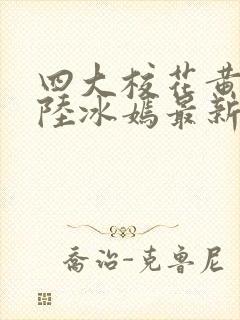 四大校花黄
陸冰嫣最新
喬治-克魯尼